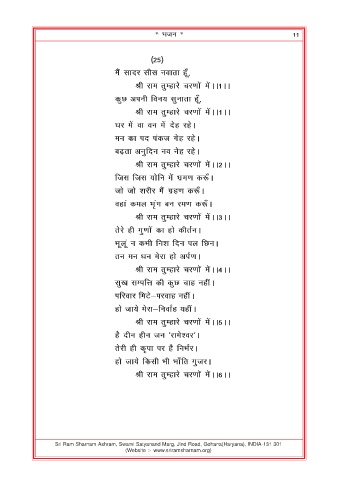 * भजन *
11
(25)
मैं सादर सीस नवाता हूँ,
श्री राम तुम्हारे चरणों में।।1।।
कुछ अपनी विनय सुनाता हूँ,
श्री राम तुम्हारे चरणों में।।1।।
घर में वा वन में देह रहे।
मन का पद पंकज गेह रहे।
बढ़ता अनुदिन नव नेह रहे।
श्री राम तुम्हारे चरणों में।।2।।
जिस जिस योनि में भ्रमण करूँ।
जो जो शरीर मैं ग्रहण करूँ।
वहां कमल भृंग बन रमण करूँ।
श्री राम तुम्हारे चरणों में।।3।।
तेरे ही गुणों का हो कीर्तन।
भूलूं न कभी निश दिन पल छिन।
तन मन धन मेरा हो अर्पण।
श्री राम तुम्हारे चरणों में।।4।।
सुख सम्पत्ति की कुछ चाह नहीं।
परिवार मिटे–परवाह नहीं।
हो जाये मेरा–निर्वाह यहीं।
श्री राम तुम्हारे चरणों में।।5।।
है दीन हीन जन 'रामेश्वर'।
तेरी ही कृपा पर है निर्भर।
हो जाये किसी भी भाँति गुजर।
श्री राम तुम्हारे चरणों में।।6।।
Sri Ram Sharnam Ashram, Swami Satyanand Marg, Jind Road, Gohana(Haryana), INDIA-131 301
(Website :- www.sriramsharnam.org)